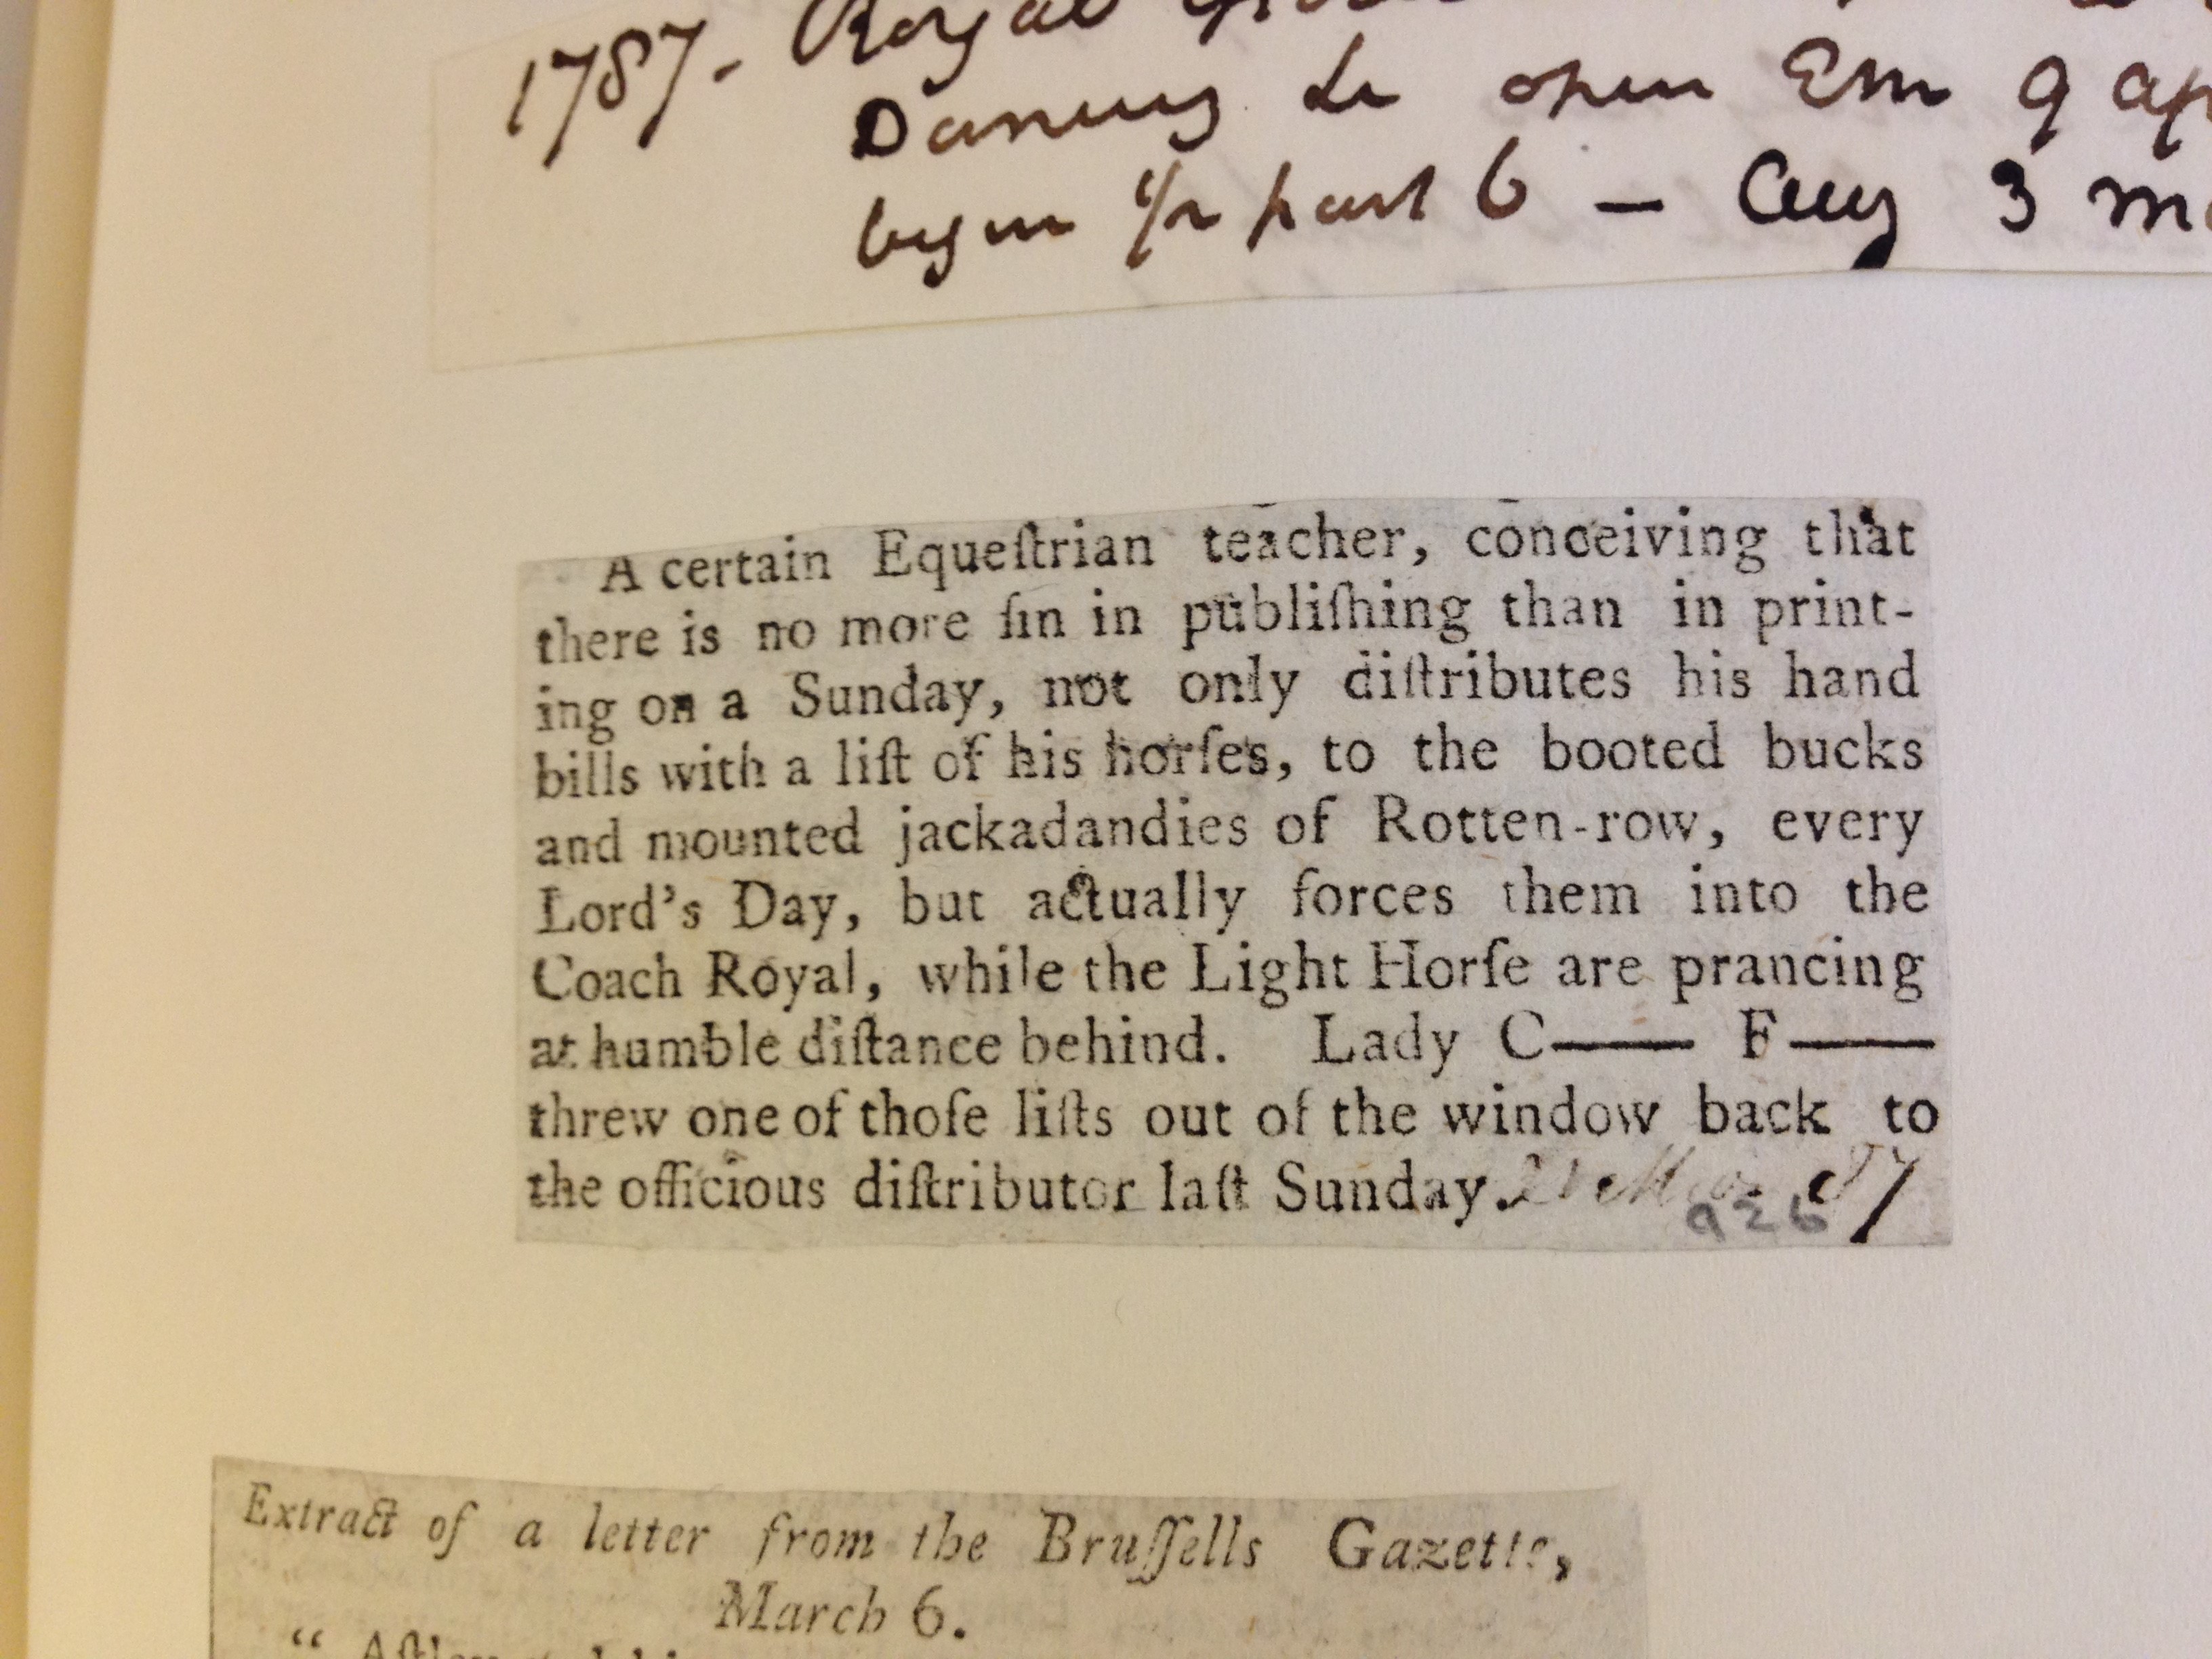 1787. Royal
Dancing &c open Em 9 ap
begin 1/2 past 6 — Aug 3
A certain Equeſtrian teacher, conceiving that
there is no more ſin in publiſhing than in print-
ing on a Sunday, not only diſtributes his hand
bills with a liſt of his horſes, to the booted bucks
and mounted jackadandies of Rotten-row, every
Lord's Day, but actually forces them into the
Coach Royal, while the Light Horſe are prancing
at humble diſtance behind. Lady C—— F——
threw one of thoſe liſts out of the window back to
the officious diſtributor laſt Sunday. 21 Mar 87
926
Extract of a letter from the Bruſſells Gazette,
March 6.
“ Aſtley